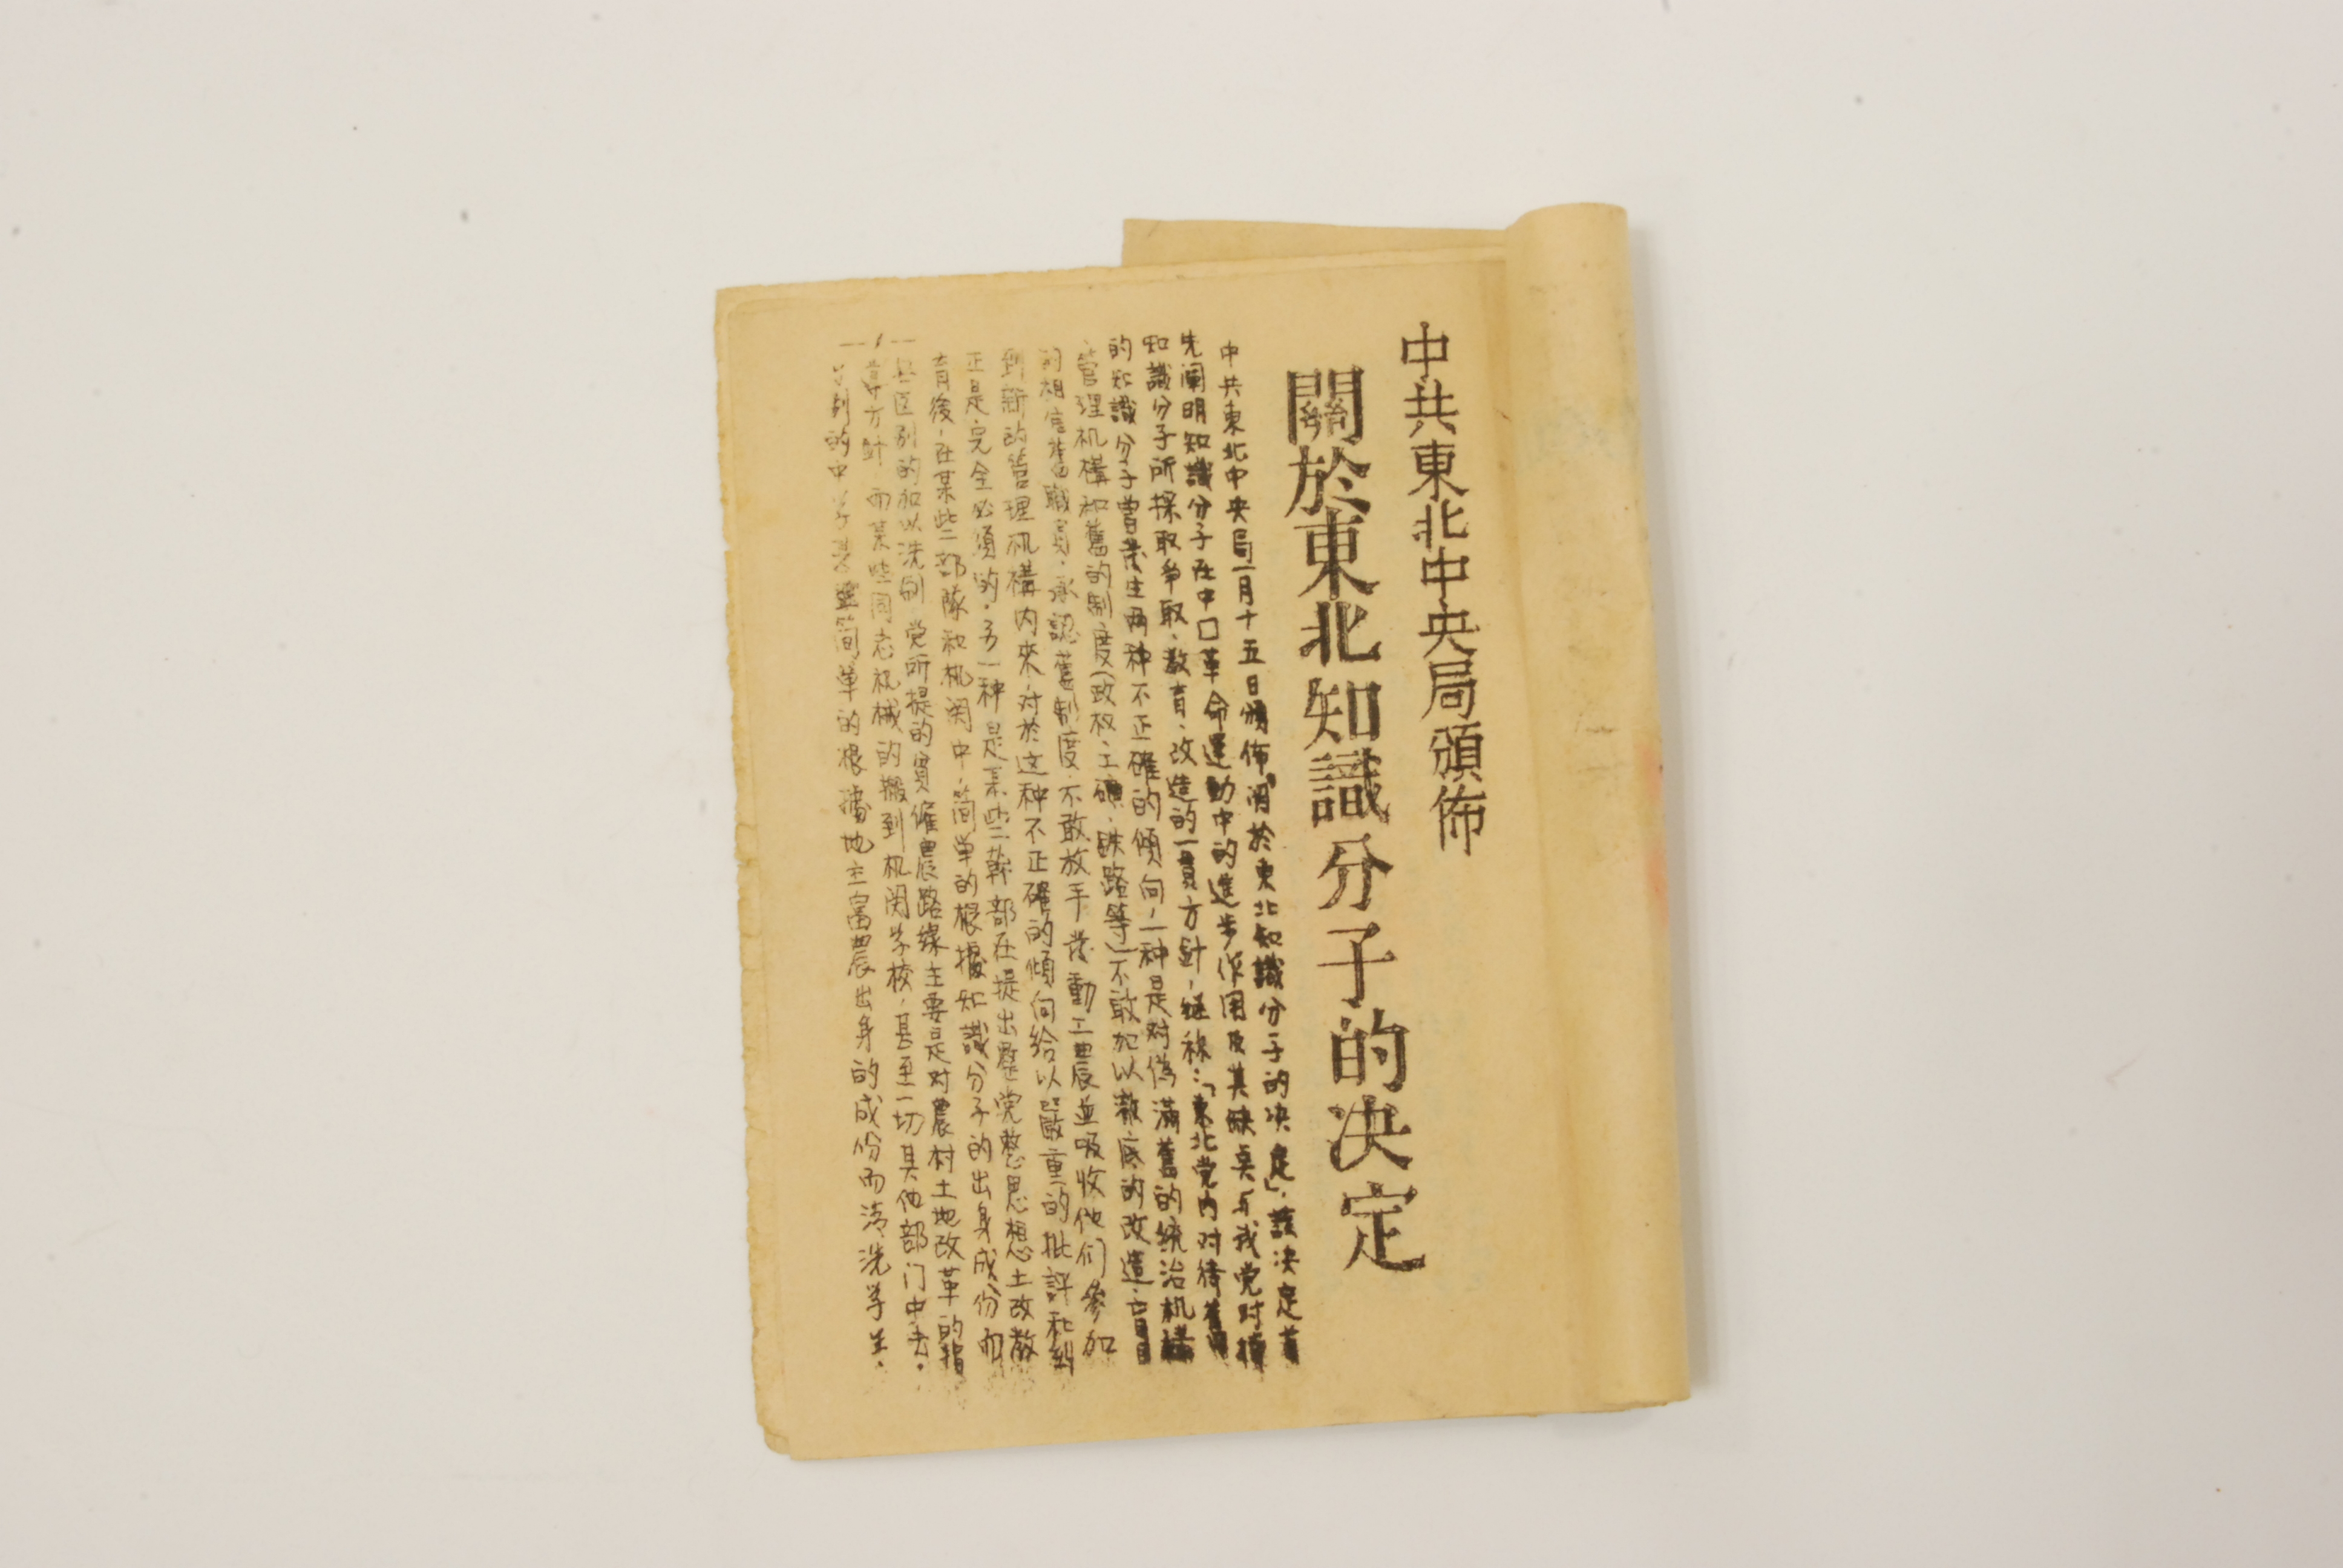 中共東北中央局頒佈
關於東北知識分子的决定
中共東北中央局一月十五日頒佈「関於東北知識分子的决定」，該决定首
先闡明知識分子在中囗革命運動中的進步作用及其缺点与我党对
知識分子所採取争取、教育、改造的一貫方針，継称：「東北党内对待舊
的知識分子曾発生両种不正確的傾向，一种是对偽滿舊的統治机構
管理机構和舊的制度（政权、工礦、鉄路等）不敢加以澈底的改造，盲目
的相信舊職員，承認舊制度，不敢放手発動工農並吸收他们參加
到新的管理机構内來，对於这种不正確的傾向給以嚴重的批評和糾
正是完全必須的。另一种是某些幹部在提出整党整思想土改教
育後，在某些部隊和机関中，简单的根據知識分子的出身成份而
区别的加以洗刷 党所提的貧僱農路線主要是对農村土地改革的指
導方針 而某些同志机械的搬到机関学校，甚至一切其他部门中去。
的中学甚至简单的根據地主富農出身的成份而清洗学生。